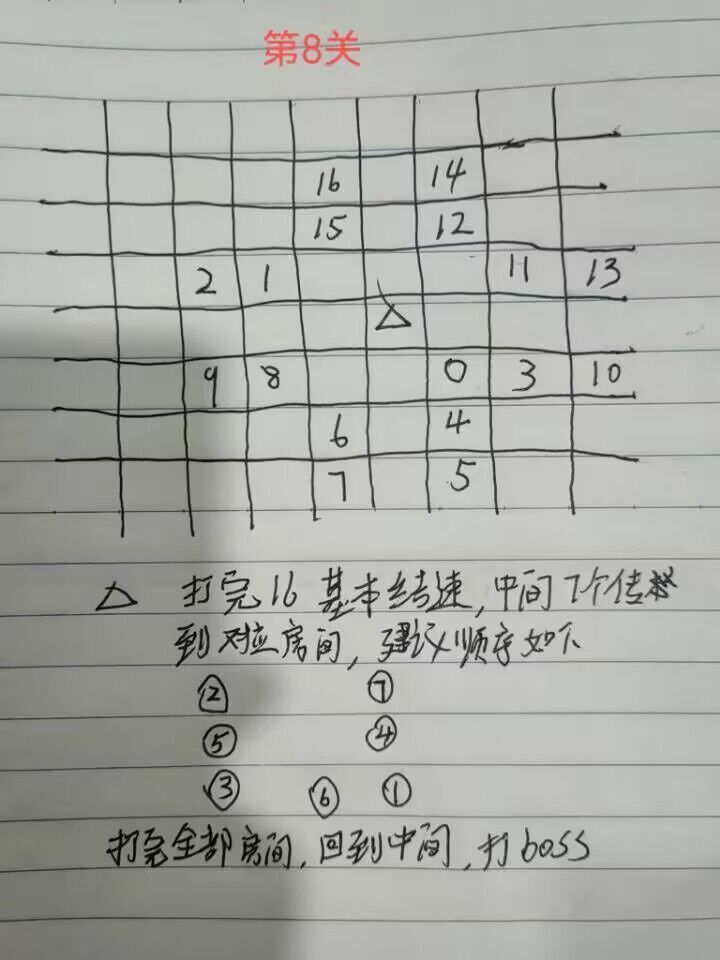 第8关
16 14
15 12
2 1 11 13
△
9 8 0 3 10
6 4
7 5
△ 打完16基本结速,中间7个传
到对应房间,建议顺序如下
② ⑦
⑤ ④
③ ⑥ ①
打完全部房间,回到中间,打boss